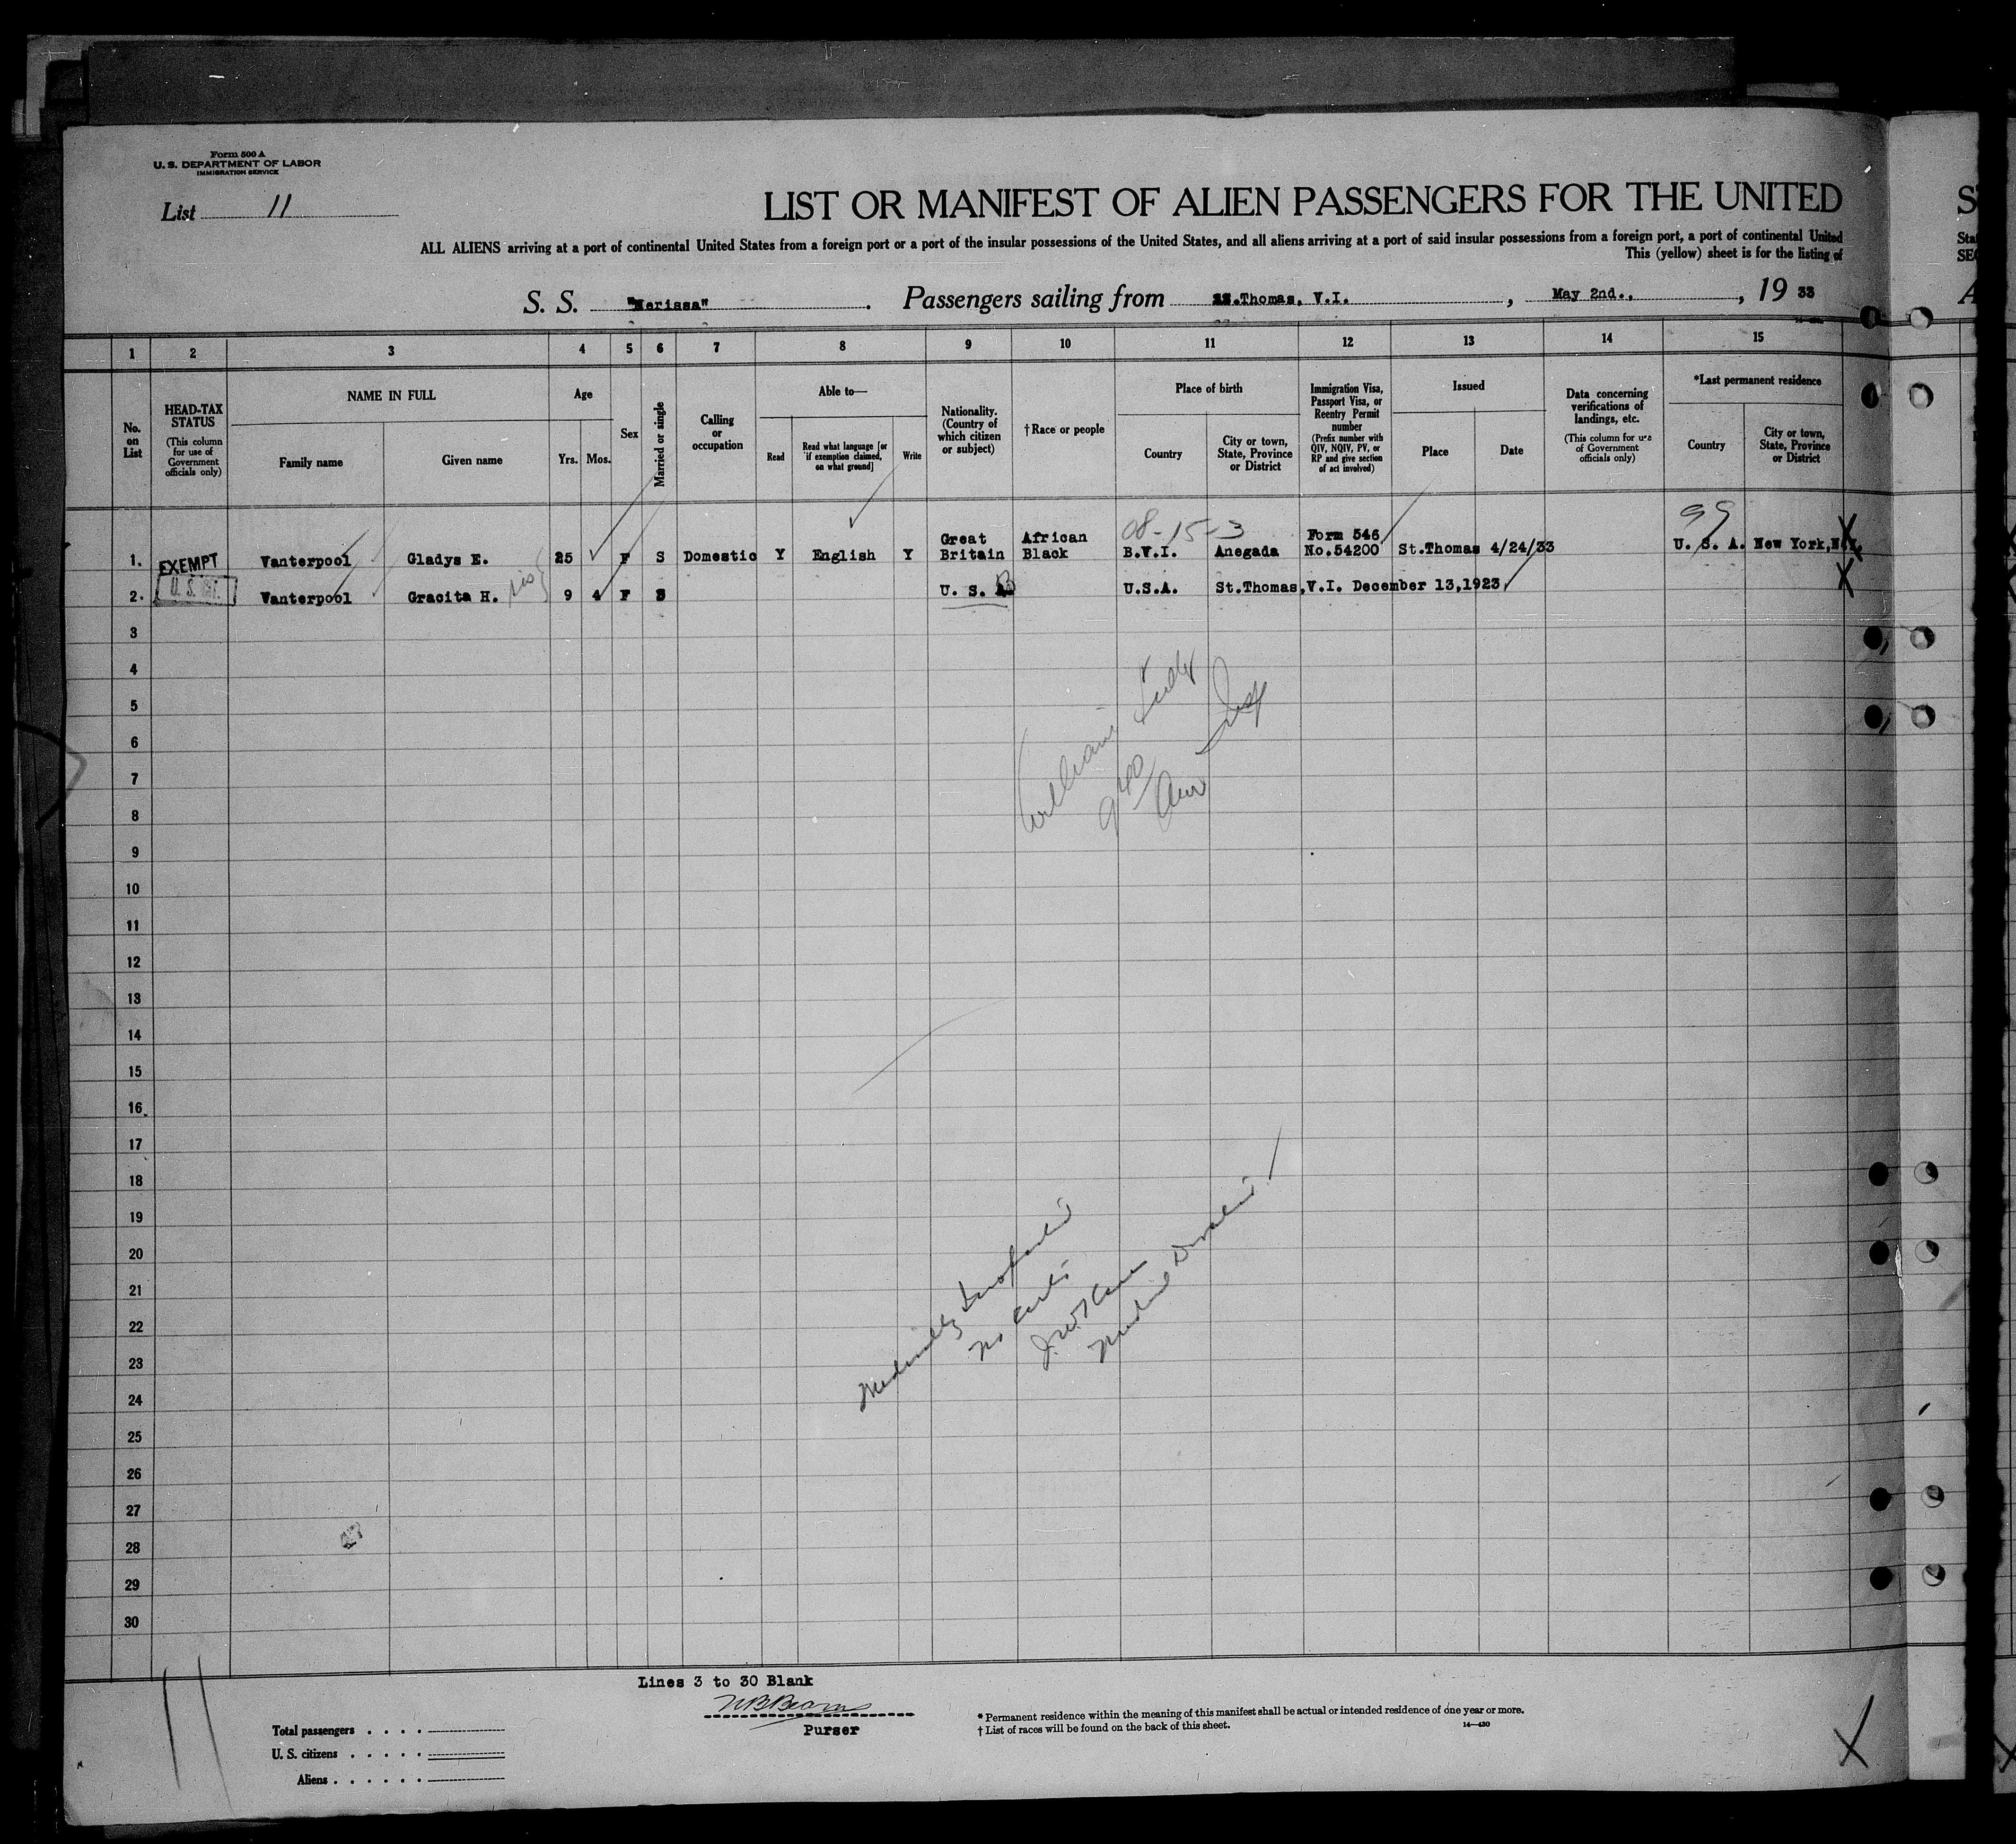 Form 500 A
U. S. DEPARTMENT OF LABOR
IMMIGRATION SERVICE
List 11
LIST OR MANIFEST OF ALIEN PASSENGERS FOR THE UNITED
ALL ALIENS arriving at a port of continental United States from a foreign port or a port of the insular possessions of the United States, and all aliens arriving at a port of said insular possessions from a foreign port, a port of continental United
This (yellow) sheet is for the listing of
S. S. "Nerissa" . Passengers sailing from St.Thomas, V.I. , May 2nd., , 19 33
1 2 3 4 5 6 7 8 9 10 11 12 13 14 15
No. on List
HEAD-TAX STATUS
(This column for use of Government officials only)
NAME IN FULL
Family name Given name
Age
Yrs. Mos.
Sex
Married or single
Calling or occupation
Able to—
Read
Read what language [or if exemption claimed, on what ground]
Write
Nationality. (Country of which citizen or subject)
†Race or people
Place of birth
Country
City or town, State, Province or District
Immigration Visa, Passport Visa, or Reentry Permit number
(Prefix number with QIV, NQIV, PV, or RP and give section of act involved)
Issued
Place Date
Data concerning verifications of landings, etc.
(This column for use of Government officials only)
*Last permanent residence
Country
City or town, State, Province or District
08-15-3
99
1. EXEMPT Vanterpool Gladys E. 25 F S Domestic Y English Y Great Britain African Black B.V.I. Anegada Form 546 No.54200 St.Thomas 4/24/33 U. S. A. New York, N.Y.
2. Vanterpool Gracita H. sis 9 4 F S U. S. U.S.A. St.Thomas, V.I. December 13,1923
3
4
5
6
7
8
9
10
11
12
13
14
15
16
17
18
19
20
21
22
23
24
25
26
27
28
29
30
William
Medically Inspected
no certs
Medical
Lines 3 to 30 Blank
Purser
Total passengers . . . .
U. S. citizens . . . . .
Aliens . . . . . .
* Permanent residence within the meaning of this manifest shall be actual or intended residence of one year or more.
† List of races will be found on the back of this sheet.
14—430
11